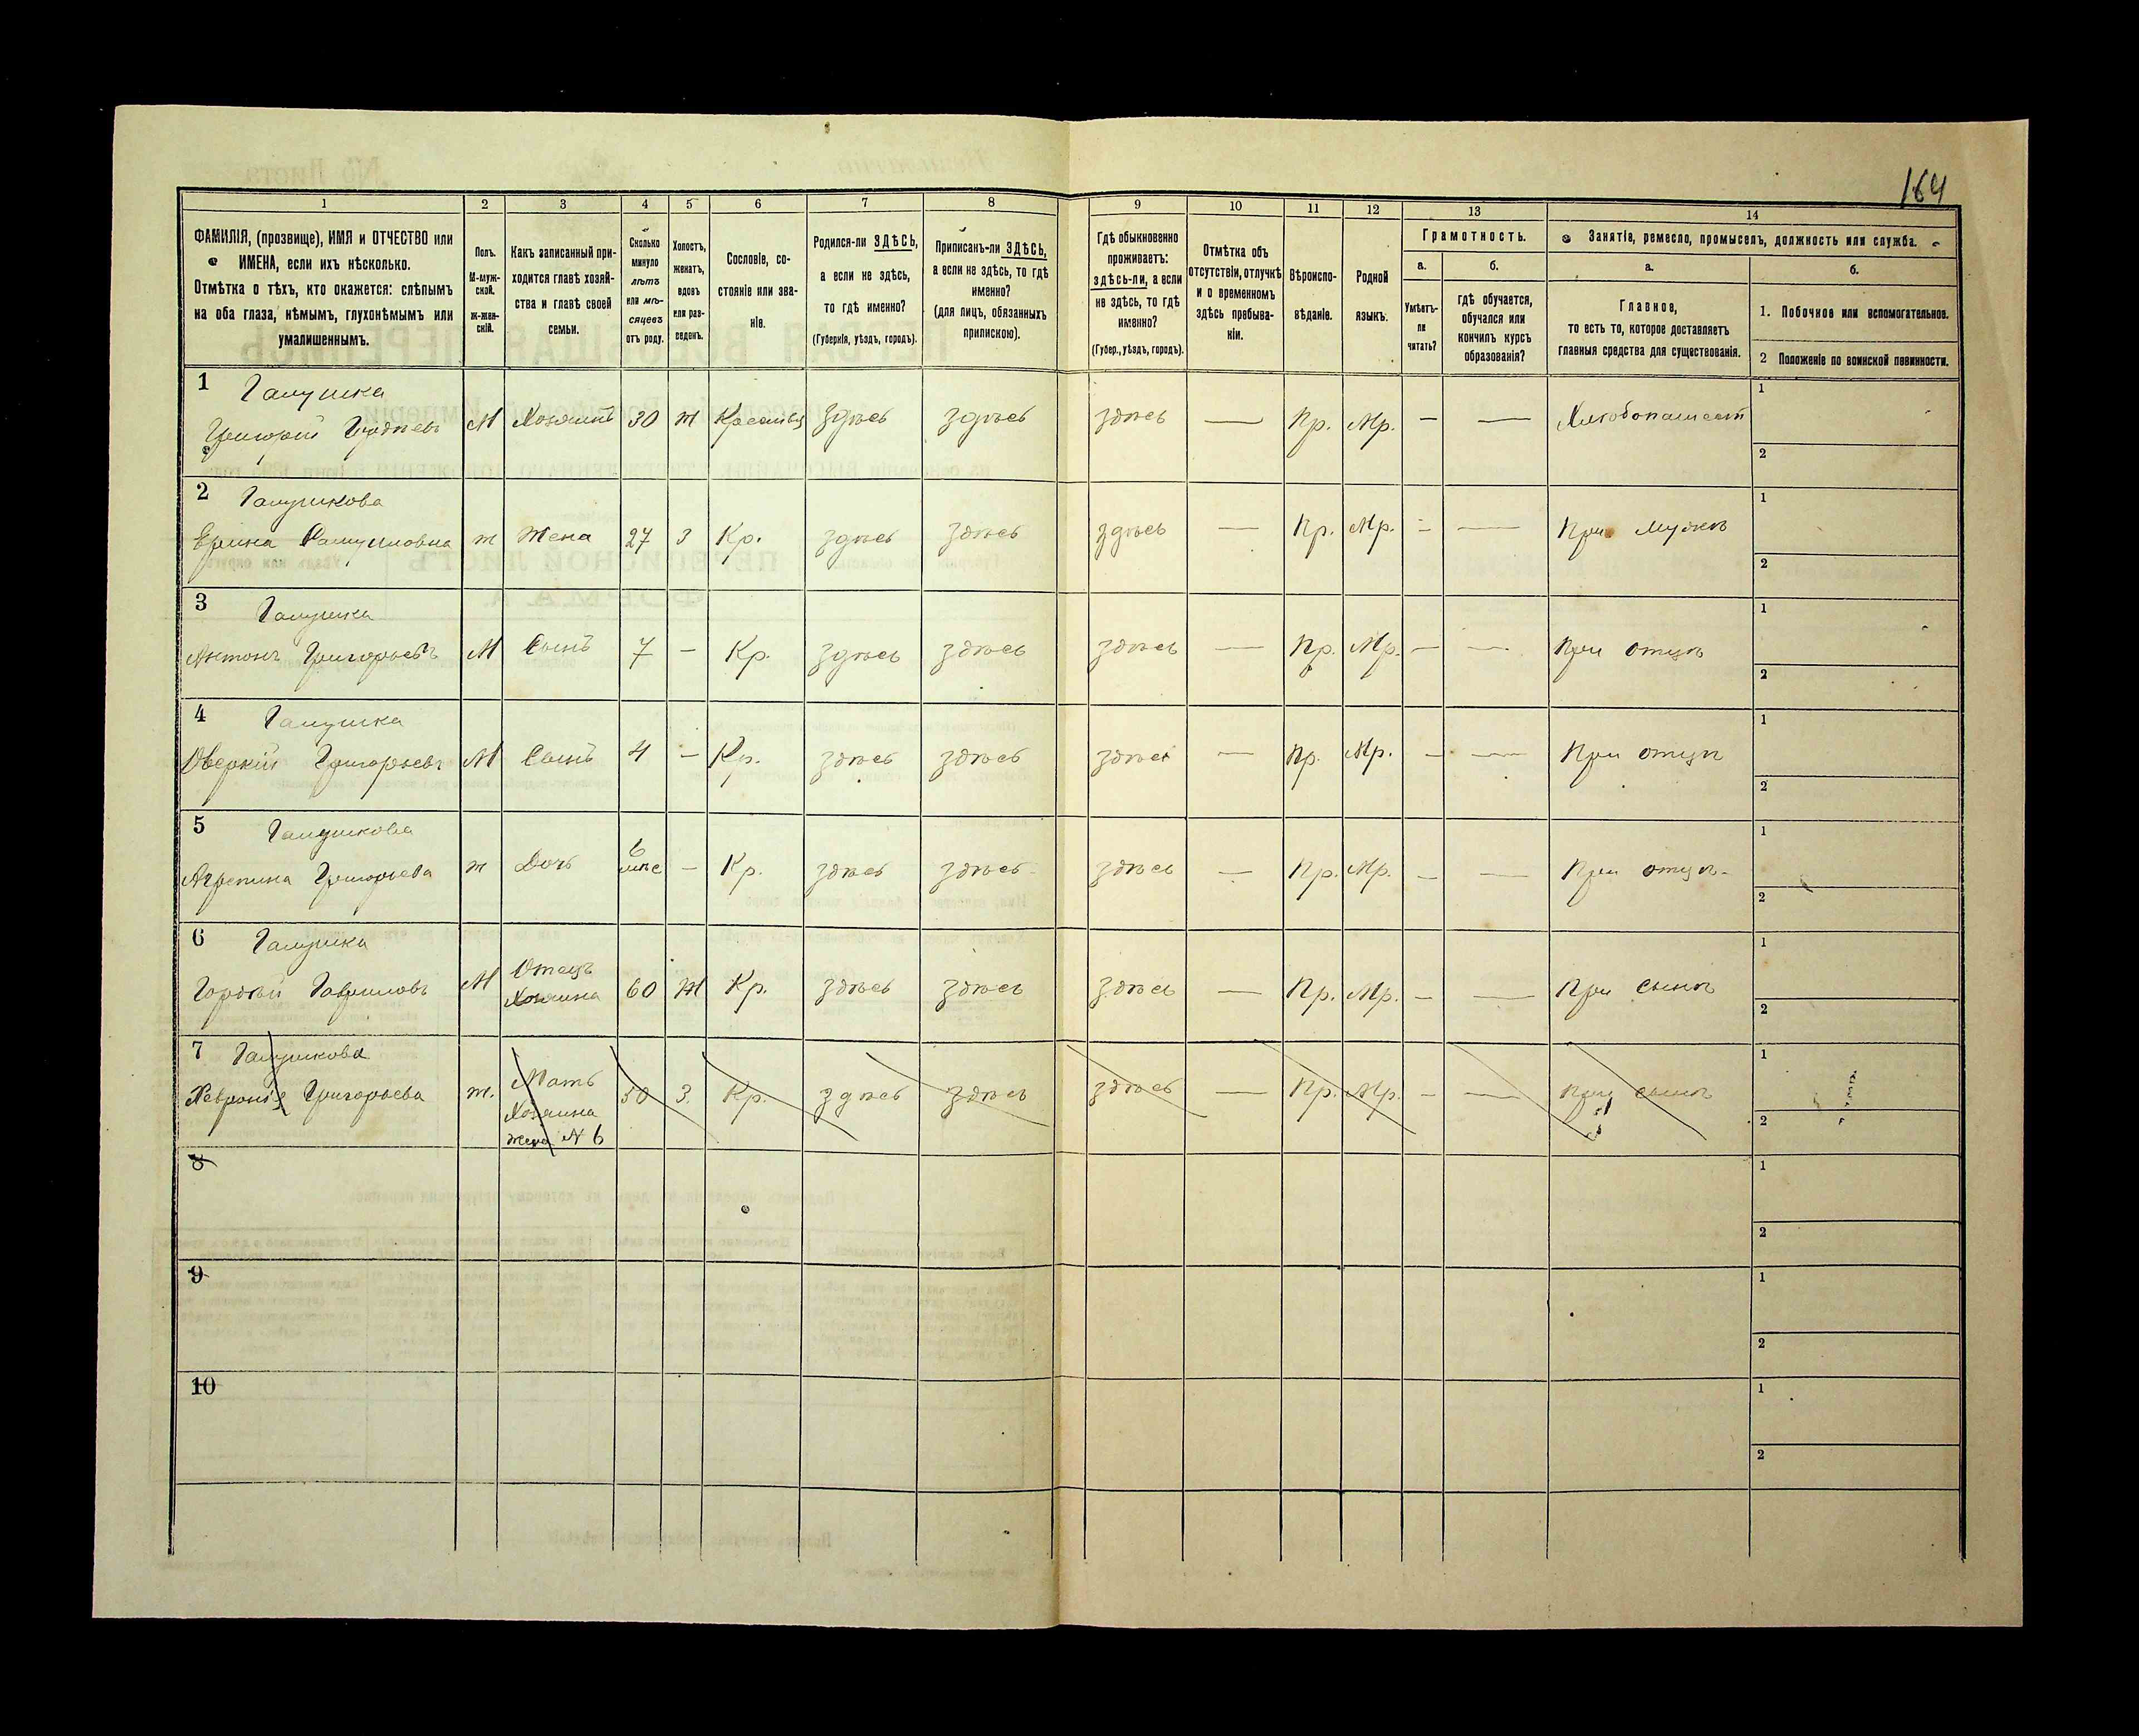 164
1 2 3 4 5 6 7 8 9 10 11 12 13 14
ФАМИЛІЯ, (прозвище), ИМЯ и ОТЧЕСТВО или
ИМЕНА, если ихъ нѣсколько.
Отмѣтка о тѣхъ, кто окажется: слѣпымъ
на оба глаза, нѣмымъ, глухонѣмымъ или
умалишеннымъ.
Полъ.
М-муж-
ской.
ж-жен-
скій.
Какъ записанный при-
ходится главѣ хозяй-
ства и главѣ своей
семьи.
Сколько
минуло
лѣтъ
или мѣ-
сяцевъ
отъ роду.
Холостъ,
женатъ,
вдовъ
или раз-
веденъ.
Сословіе, со-
стояніе или зва-
ніе.
Родился-ли ЗДѢСЬ,
а если не здѣсь,
то гдѣ именно?
(Губернія, уѣздъ, городъ).
Приписанъ-ли ЗДѢСЬ,
а если не здѣсь, то гдѣ
именно?
(для лицъ, обязанныхъ
припискою).
Гдѣ обыкновенно
проживаетъ:
здѣсь-ли, а если
не здѣсь, то гдѣ
именно?
(Губер., уѣздъ, городъ).
Отмѣтка объ
отсутствіи, отлучкѣ
и о временномъ
здѣсь пребыва-
ніи.
Вѣроиспо-
вѣданіе.
Родной
языкъ.
Грамотность.
а.
Умѣетъ-
ли
читать?
б.
гдѣ обучается,
обучался или
кончилъ курсъ
образованія?
Занятіе, ремесло, промыселъ, должность или служба.
а.
Главное,
то есть то, которое доставляетъ
главныя средства для существованія.
б.
1. Побочное или вспомогательное.
2 Положеніе по воинской повинности.
1 Галушка 1
Григорій Гордѣевъ М Хозяинъ 30 ж здѣсь здѣсь здѣсь — Пр. Мр. — —
2
2 Галушкова 1
ж Жена 27 З Кр. здѣсь здѣсь здѣсь — Пр. Мр. — — При мужѣ
2
3 Галушка 1
Антонъ Григорьевъ М Сынъ 7 — Кр. здѣсь здѣсь здѣсь — Пр. Мр. — — При отцѣ
2
4 Галушка 1
Григорьевъ М Сынъ 4 — Кр. здѣсь здѣсь здѣсь — Пр. Мр. — — При отцѣ
2
5 Галушкова 1
Агрепина Григорьева ж Дочь 6 мѣс — Кр. здѣсь здѣсь здѣсь — Пр. Мр. — — При отцѣ
2
6 Галушка 1
Гордѣй Гавриловъ М Отецъ Хозяина 60 Ж Кр. здѣсь здѣсь здѣсь — Пр. Мр. — — При сынѣ
2
7 Галушкова 1
Григорьева ж. Мать Хозяина жена N 6 50 З. Кр. здѣсь здѣсь здѣсь — Пр. Мр. — — При сынѣ
2
8 1
2
9 1
2
10 1
2